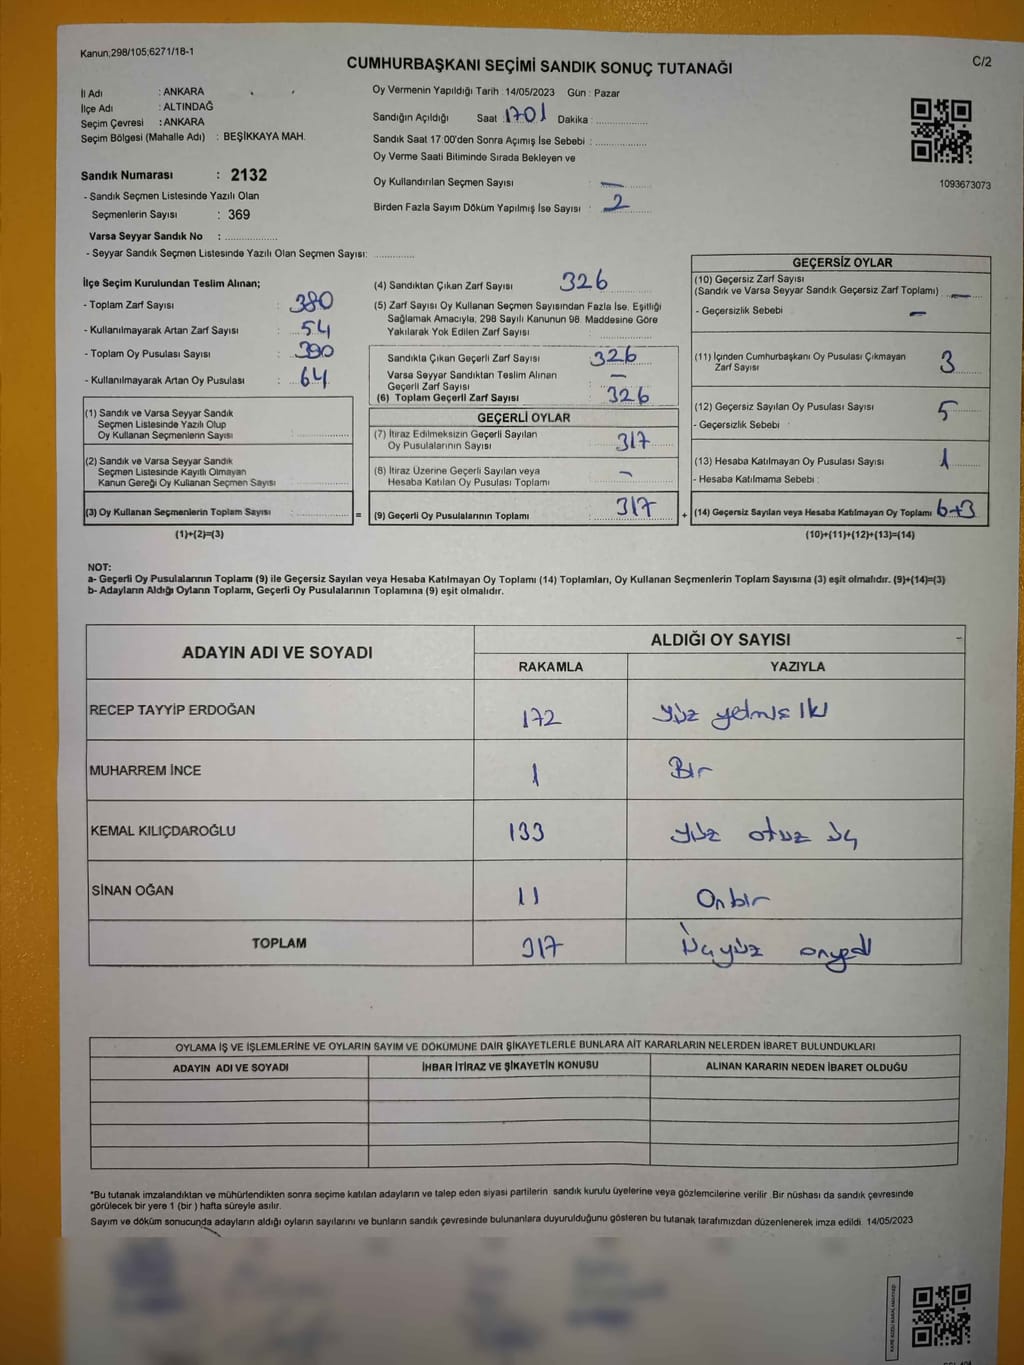 Kanun;298/105;6271/18-1
CUMHURBAŞKANI SEÇİMİ SANDIK SONUÇ TUTANAĞI
C/2
İl Adı : ANKARA
İlçe Adı : ALTINDAĞ
Seçim Çevresi : ANKARA
Seçim Bölgesi (Mahalle Adı) : BEŞİKKAYA MAH.
Oy Vermenin Yapıldığı Tarih :14/05/2023 Gün : Pazar
Sandığın Açıldığı Saat :1701 Dakika :
Sandık Saat 17:00'den Sonra Açımış İse Sebebi :
Oy Verme Saati Bitiminde Sırada Bekleyen ve
Oy Kullandırılan Seçmen Sayısı : —
Birden Fazla Sayım Döküm Yapılmış İse Sayısı : 2
1093673073
Sandık Numarası : 2132
- Sandık Seçmen Listesinde Yazılı Olan
Seçmenlerin Sayısı : 369
Varsa Seyyar Sandık No :
- Seyyar Sandık Seçmen Listesinde Yazılı Olan Seçmen Sayısı:
İlçe Seçim Kurulundan Teslim Alınan;
- Toplam Zarf Sayısı : 380
- Kullanılmayarak Artan Zarf Sayısı : 54
- Toplam Oy Pusulası Sayısı : 390
- Kullanılmayarak Artan Oy Pusulası : 64
(1) Sandık ve Varsa Seyyar Sandık
Seçmen Listesinde Yazılı Olup
Oy Kullanan Seçmenlerin Sayısı :
(2) Sandık ve Varsa Seyyar Sandık
Seçmen Listesinde Kayıtlı Olmayan
Kanun Gereği Oy Kullanan Seçmen Sayısı :
(3) Oy Kullanan Seçmenlerin Toplam Sayısı :
(1)+(2)=(3)
(4) Sandıktan Çıkan Zarf Sayısı : 326
(5) Zarf Sayısı Oy Kullanan Seçmen Sayısından Fazla İse, Eşitliği
Sağlamak Amacıyla, 298 Sayılı Kanunun 98. Maddesine Göre
Yakılarak Yok Edilen Zarf Sayısı :
Sandıkta Çıkan Geçerli Zarf Sayısı : 326
Varsa Seyyar Sandıktan Teslim Alınan
Geçerli Zarf Sayısı : —
(6) Toplam Geçerli Zarf Sayısı : 326
GEÇERLİ OYLAR
(7) İtiraz Edilmeksizin Geçerli Sayılan
Oy Pusulalarının Sayısı : 317
(8) İtiraz Üzerine Geçerli Sayılan veya
Hesaba Katılan Oy Pusulası Toplamı : —
= (9) Geçerli Oy Pusulalarının Toplamı : 317
GEÇERSİZ OYLAR
(10) Geçersiz Zarf Sayısı
(Sandık ve Varsa Seyyar Sandık Geçersiz Zarf Toplamı) : —
- Geçersizlik Sebebi : —
(11) İçinden Cumhurbaşkanı Oy Pusulası Çıkmayan
Zarf Sayısı : 3
(12) Geçersiz Sayılan Oy Pusulası Sayısı : 5
- Geçersizlik Sebebi :
(13) Hesaba Katılmayan Oy Pusulası Sayısı : 1
- Hesaba Katılmama Sebebi :
+ (14) Geçersiz Sayılan veya Hesaba Katılmayan Oy Toplamı : 6+3
(10)+(11)+(12)+(13)=(14)
NOT:
a- Geçerli Oy Pusulalarının Toplamı (9) ile Geçersiz Sayılan veya Hesaba Katılmayan Oy Toplamı (14) Toplamları, Oy Kullanan Seçmenlerin Toplam Sayısına (3) eşit olmalıdır. (9)+(14)=(3)
b- Adayların Aldığı Oyların Toplamı, Geçerli Oy Pusulalarının Toplamına (9) eşit olmalıdır.
ADAYIN ADI VE SOYADI ALDIĞI OY SAYISI
RAKAMLA YAZIYLA
RECEP TAYYİP ERDOĞAN 172 Yüz yetmiş iki
MUHARREM İNCE 1 Bir
KEMAL KILIÇDAROĞLU 133 Yüz otuz üç
SİNAN OĞAN 11 Onbir
TOPLAM 317 Üçyüz onyedi
OYLAMA İŞ VE İŞLEMLERİNE VE OYLARIN SAYIM VE DÖKÜMÜNE DAİR ŞİKAYETLERLE BUNLARA AİT KARARLARIN NELERDEN İBARET BULUNDUKLARI
ADAYIN ADI VE SOYADI İHBAR İTİRAZ VE ŞİKAYETİN KONUSU ALINAN KARARIN NEDEN İBARET OLDUĞU
*Bu tutanak imzalandıktan ve mühürlendikten sonra seçime katılan adayların ve talep eden siyasi partilerin sandık kurulu üyelerine veya gözlemcilerine verilir. Bir nüshası da sandık çevresinde
görülecek bir yere 1 (bir) hafta süreyle asılır.
Sayım ve döküm sonucunda adayların aldığı oyların sayılarını ve bunların sandık çevresinde bulunanlara duyurulduğunu gösteren bu tutanak tarafımızdan düzenlenerek imza edildi. 14/05/2023